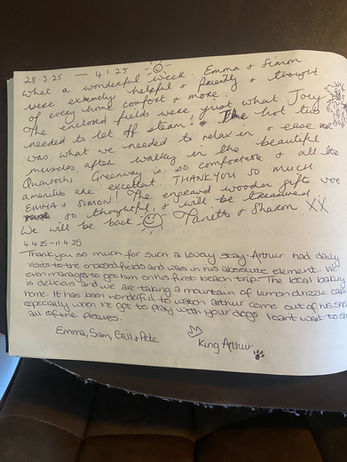 28.3.25 — 4.1.25
What a wonderful week. Emma & Simon
were extremely helpful & friendly & thought
of every home comfort & more.
The enclosed fields were just what Joey
needed to let off steam! & The hot tub
was what we needed to relax in & ease our
muscles after walking in the beautiful
Greenway is so comfortable & all the
amenities are excellent. THANKYOU so much
EMMA & SIMON! The engraved wooden gifts were
so thoughtful, & will be treasured
We will be back Janette & Sharon XX
4.4.25-11.4.25
Thankyou so much for such a lovely stay. Arthur had daily
visits to the enclosed fields and was in his absolute element. We
even managed to get him on his first beach trip. The local bakery
is delicious and we are taking a mountain of lemon drizzle cake
home. It has been wonderful to watch Arthur come out of his sh
especially when he got to play with your dogs. I cant wait to sh
all of the pictures.
Emma, Sam, Gail & Pete
King Arthur